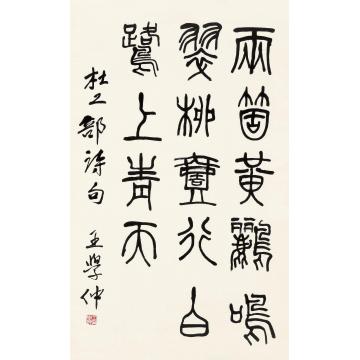 兩箇黃鸝鳴
翠柳壹行白
鷺上青天
杜工部詩句 王學仲